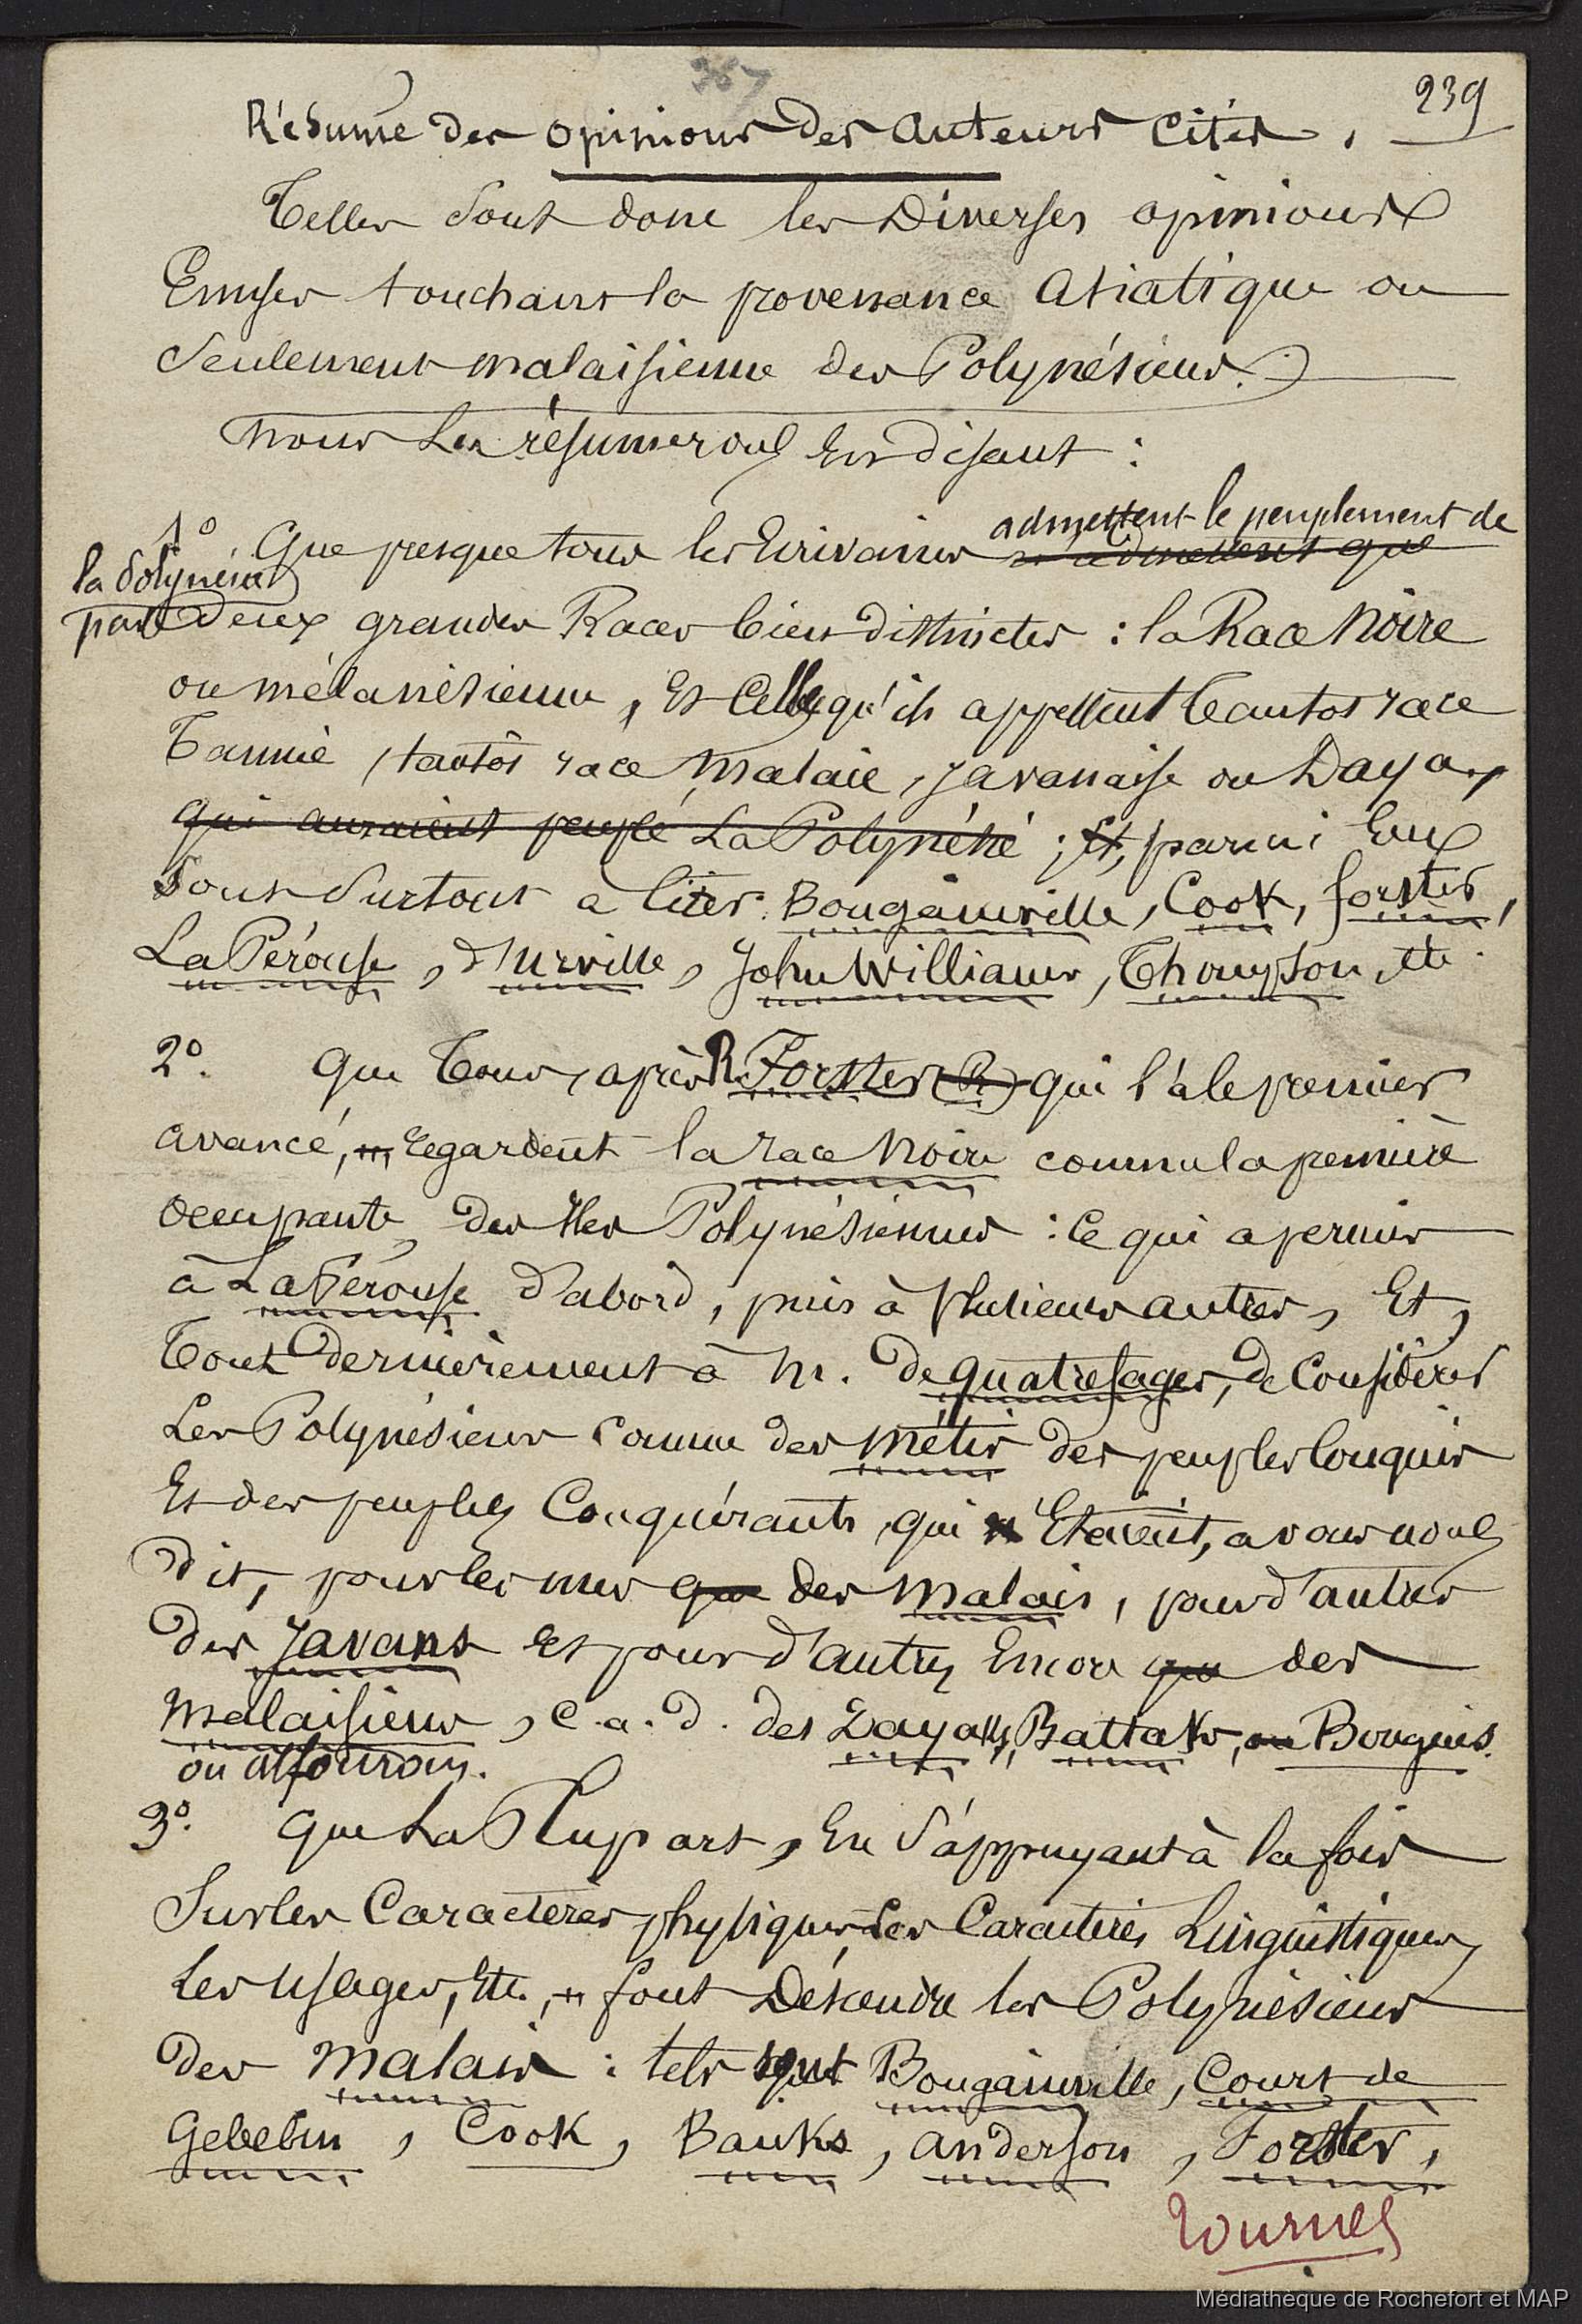 367
239
Résumé des opinions des auteurs cités.
Telles sont donc les Diverses opinions
Emises touchant la provenance Asiatique ou
Seulement malaisienne des Polynésiens.
nous Les résumerons En disant :
1° Que presque tous les Ecrivains admettent le peuplement de
admettent que
la Polynésie
par Deux grandes Races bien distinctes : la Race Noire
ou mélanésienne, Et Celle qu'ils appellent tantot race
Tannée, tantôt race Malaie, javanaise ou Daya,
qui auraient peuplé La Polynésie ; Et, parmi Eux
Sont Surtout a citer Bougainville, Cook, forster,
La Pérouse, d'Urville, John Williams, Thompson, etc.
2°. Que Tous, après R. Forster (R.) qui l'a le premier
avancé, regardent la race Noire comme la première
occupante des Iles Polynésiennes : ce qui a permis
à La Pérouse d'abord, puis à plusieurs autres, Et,
Tout Dernièrement à M. De Quatrefages, de Considérer
Les Polynésiens comme des métis des peuples conquis
Et des peuples Conquérants, qui Etaient, avons nous
Dit, pour les uns que des Malais, pour d'autres
Des Javans Et pour d'autres Encore que des
Malaisiens, c.a.d. des Dayaks, Battaks, ou Bouguis.
ou alfourous.
3°. Que La Plupart, En s'appuyant à la fois
Sur les Caractères physiques, Les Caractères Linguistiques,
Les Usages, Etc., font Descendre les Polynésiens
Des Malais : tels sont Bougainville, Court de
Gebelin, Cook, Banks, Anderson, Forster,
Tournez
Médiathèque de Rochefort et MAP